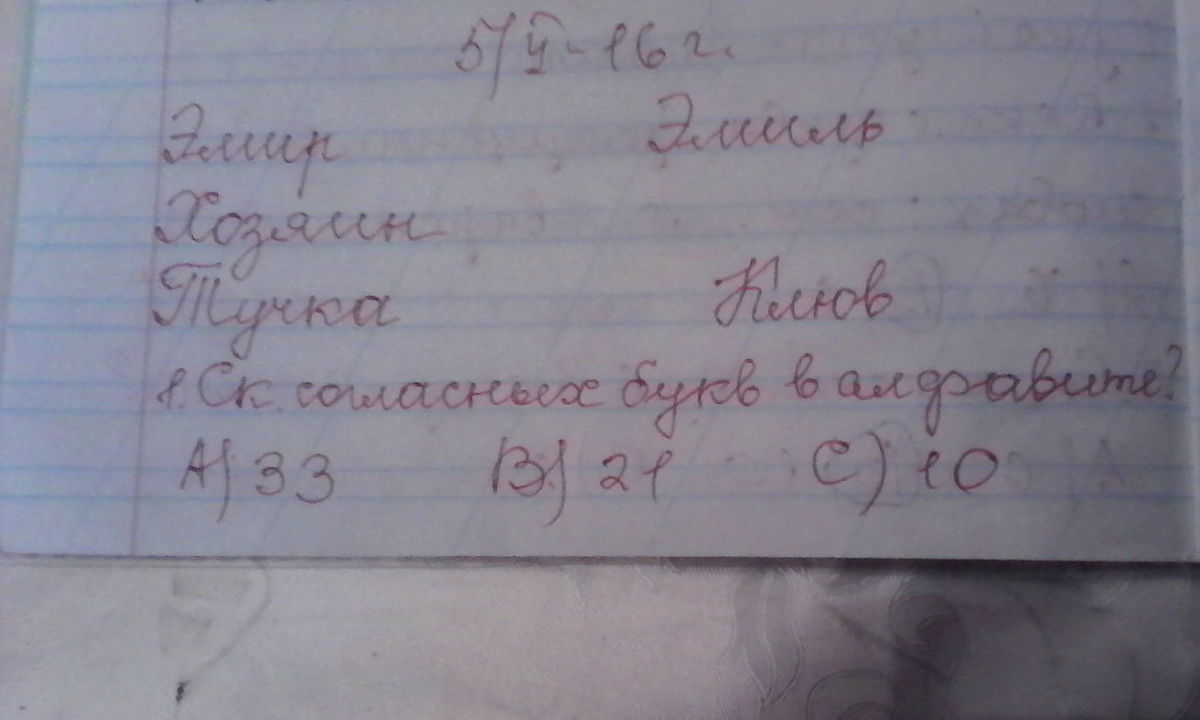 5/V-16 г.
Эмир Эмиль
Хозяин
Тучка Клюв
1. Ск. согласных букв в алфавите?
А) 33 В) 21 С) 10